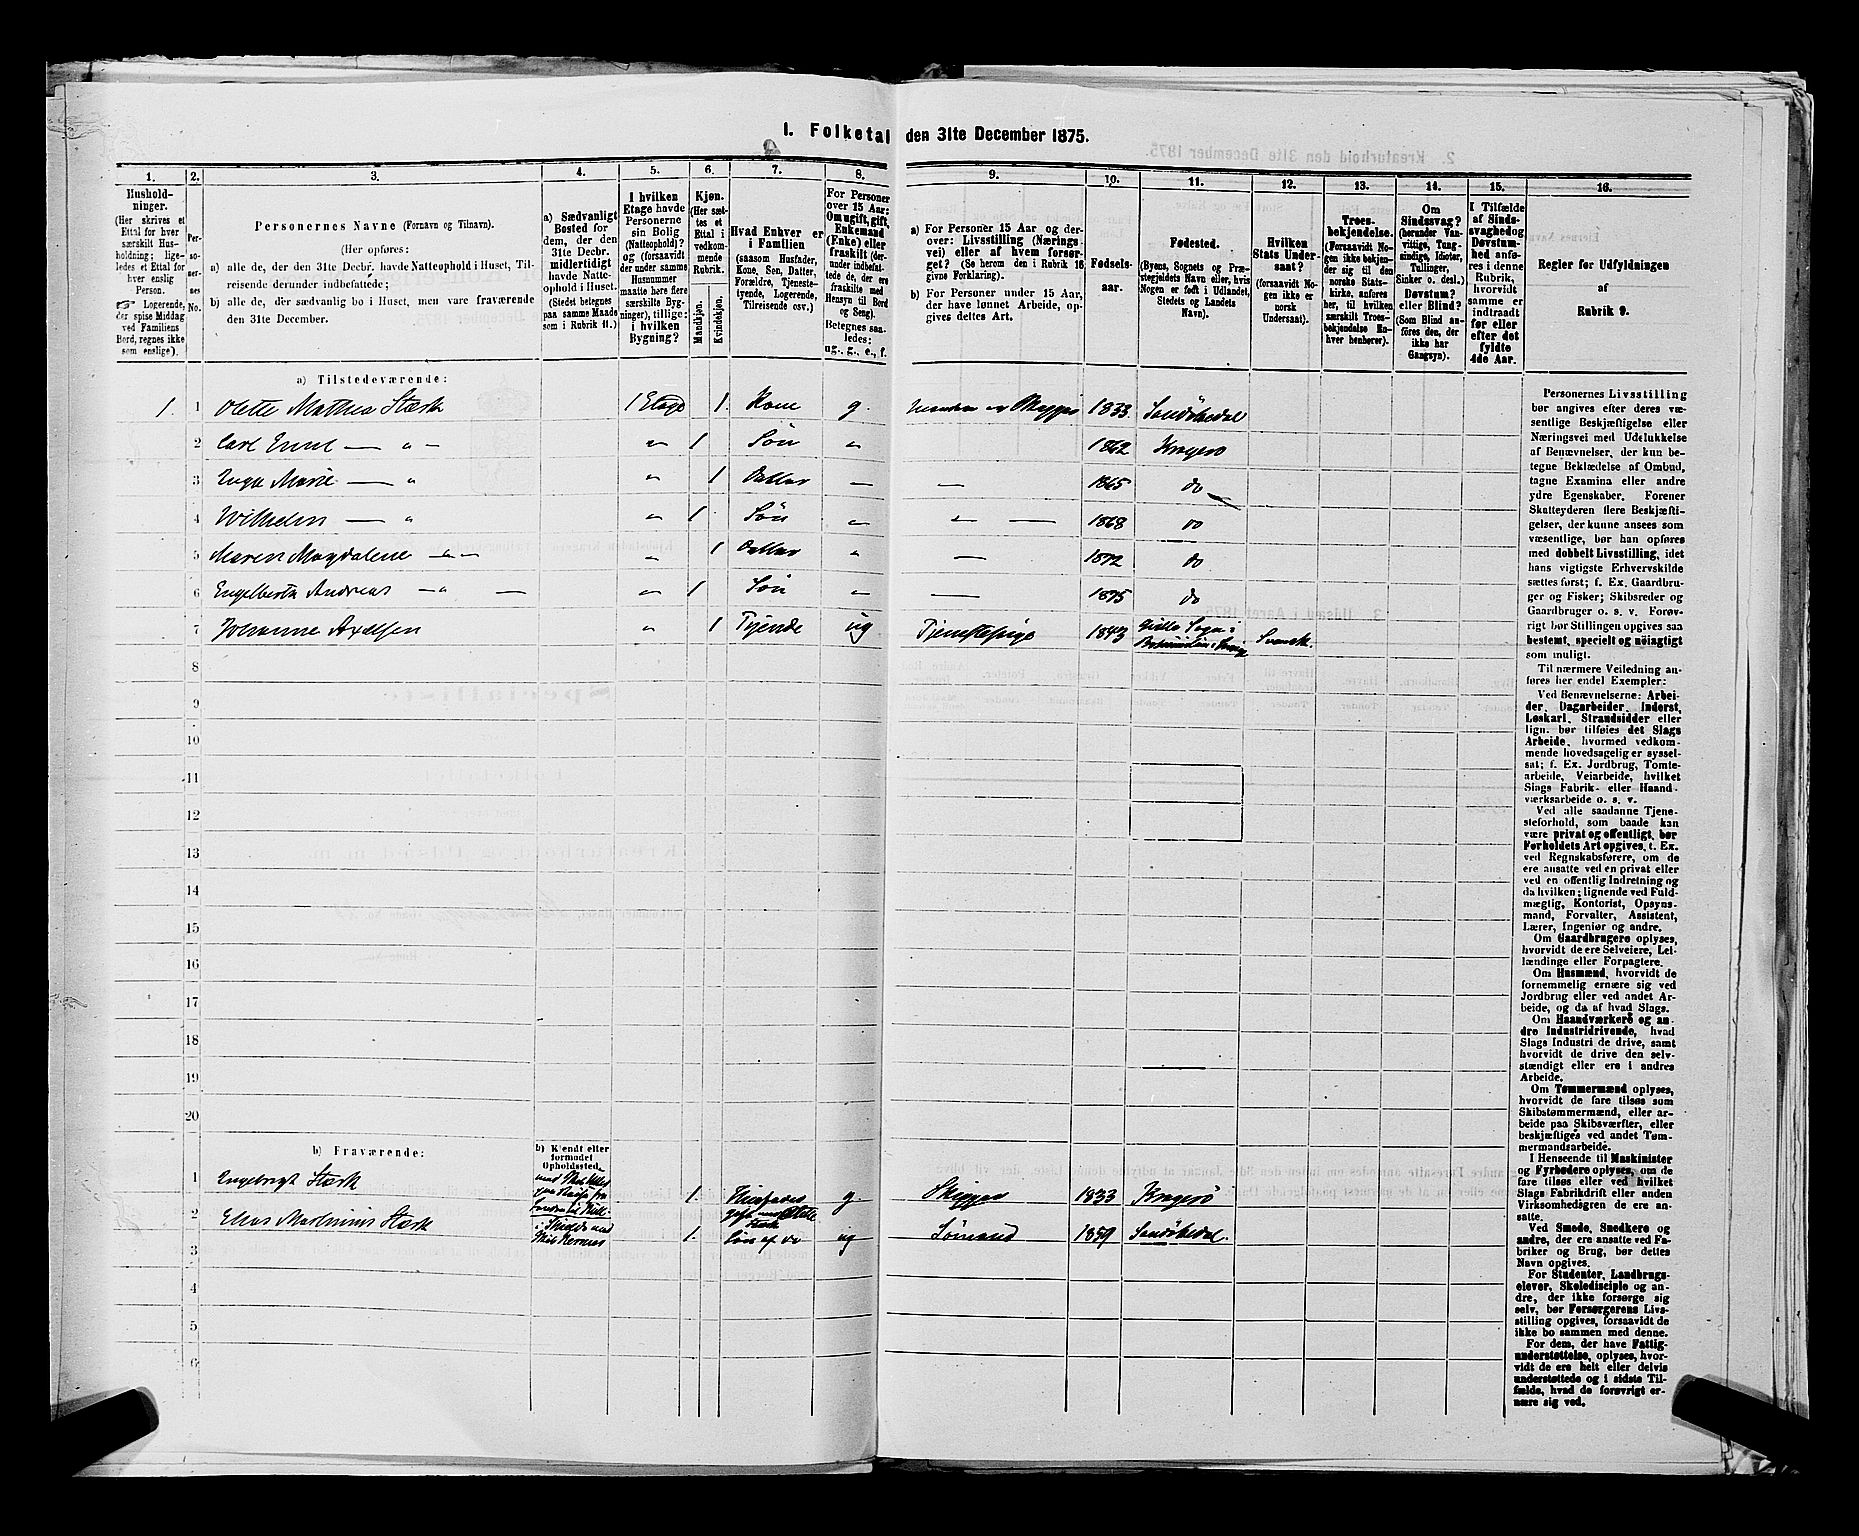 1. Folketal den 31te December 1875.
1.
Hushold-
ninger.
(Her skrives et
Ettal for hver
særskilt Hus-
holdning; lige-
ledes et Ettal for
hver enslig
Person.
☞ Logerende,
der spise Middag
ved Familiens
Bord, regnes ikke
som enslige).
2.
Per-
so-
ner-
nes
No.
3.
Personernes Navne (Fornavn og Tilnavn).
(Her opføres:
a) alle de, der den 31te Decbr. havde Natteophold i Huset, Til-
reisende derunder indbefattede;
b) alle de, der sædvanlig bo i Huset, men vare fraværende
den 31te December.
4.
a) Sædvanligt
Bosted for
dem, der den
31te Decbr.
midlertidigt
havde Natte-
ophold i Huset.
(Stedet betegnes
paa samme Maade
som i Rubrik 11.)
5.
I hvilken
Etage havde
Personerne
sin Bolig
(Natteophold)?
og (forsaavidt
der under samme
Husnummer
maatte høre flere
særskilte Byg-
ninger), tillige:
i hvilken
Bygning?
6.
Kjøn.
(Her sæt-
tes et
Ettal i
vedkom-
mende
Rubrik.
Mandkjøn.
Kvindekjøn.
7.
Hvad Enhver er
i Familien
(saasom Husfader,
Kone, Søn, Datter,
Forældre, Tjeneste-
tyende, Logerende,
Tilreisende osv.)
8.
For Personer
over 15 Aar:
Om ugift, gift,
Enkemand
(Enke) eller
fraskilt (der-
under indbefat-
tede de, der ere
fraskilte med
Hensyn til Bord
og Seng).
Betegnes saa-
ledes:
ug., g., e., f.
9.
a) For Personer 15 Aar og der-
over: Livsstilling (Nærings-
vei) eller af hvem forsør-
get? (Se herom den i Rubrik 16
givne Forklaring).
b) For Personer under 15 Aar,
der have lønnet Arbeide, op-
gives dettes Art.
10.
Fødsels-
aar.
11.
Fødested.
(Byens, Sognets og Præ-
stegjeldets Navn eller, hvis
Nogen er født i Udlandet,
Stedets og Landets
Navn).
12.
Hvilken
Stats Under-
saat?
(forsaavidt No-
gen ikke er
norsk
Undersaat).
13.
Troes-
bekjendelse.
(Forsaavidt No-
gen ikke bekjen-
der sig til den
norske Stats-
kirke, anføres
her, til hvilken
særskilt Troes-
bekjendelse En-
hver henhører).
14.
Om
Sindssvag?
(herunder Van-
vittige, Tung-
sindige, Idioter,
Tullinger,
Sinker o. desl.)
Døvstum?
eller Blind?
(Som Blind an-
føres den, der
ikke har
Gangsyn).
15.
I Tilfælde
af Sinds-
svaghed og
Døvstum-
hed anfø-
res i denne
Rubrik,
hvorvidt
samme er
indtraadt
før eller
efter det
fyldte
4de Aar.
16.
Regler for Udfyldningen
af
Rubrik 9.
a) Tilstedeværende:
1. 1 Olette Mathea Stærk 1 Etage 1. Kone g. Manden er Skipper 1833 Sandøkedal
2 Carl Emil — „ — „ 1 Søn „ 1862 Kragerø
3 Inga Marie — „ „ 1 Datter „ — 1865 do
4 Wilhelm — „ „ 1 Søn „ „ — 1868 do
5 Maren Magdalene — „ — „ 1 Datter „ — 1872 do
6 Engelbertn Andreas — „ — — „ 1 Søn „ — 1875 do
7 Johanne Axelsen „ 1 Tjende ug Tjenestepige 1843 Sogn i Svensk.
8
9
10
11
12
13
14
15
16
17
18
19
20
b) Fraværende:
b) Kjendt eller
formodet
Opholdssted.
1 Engebregt Stærk 1. Huusfader g. Skipper 1833 Kragerø
gift med Olette
Stærk
2 Elias Martinius Stærk 1. Søn af do ug Sømand 1859 Sandøkedal.
3
4
5
6
Personernes Livsstilling
bør angives efter deres væ-
sentlige Beskjæftigelse eller
Næringsvei med Udelukkelse
af Benævnelser, der kun be-
tegne Beklædelse af Ombud,
tagne Examina eller andre
ydre Egenskaber. Forener
Skatteyderen flere Beskjæfti-
gelser, der kunne ansees som
væsentlige, bør han opføres
med dobbelt Livsstilling, idet
hans vigtigste Erhvervskilde
sættes først; f. Ex. Gaardbru-
ger og Fisker; Skibsreder og
Gaardbruger o. s. v. Forøv-
rigt bør Stillingen opgives saa
bestemt, specielt og nøiagtigt
som muligt.
Til nærmere Veiledning an-
føres her endel Exempler:
Ved Benævnelserne: Arbei-
der, Dagarbeider, Inderst,
Løskarl, Strandsidder eller
lign. bør tilføies det Slags
Arbeide, hvormed vedkom-
mende hovedsagelig er syssel-
sat; f. Ex. Jordbrug, Tomte-
arbeide, Veiarbeide, hvilket
Slags Fabrik- eller Haand-
værksarbeide o. s. v.
Ved alle saadanne Tjene-
steforhold, som baade kan
være privat og offentligt, bør
Forholdets Art opgives, t. Ex.
ved Regnskabsførere, om de
ere ansatte ved en privat eller
ved en offentlig Indretning og
da hvilken; lignende ved Fuld-
mægtig, Kontorist, Opsyns-
mand, Forvalter, Assistent,
Lærer, Ingeniør og andre.
Om Gaardbrugere oplyses,
hvorvidt de ere Selveiere, Lei-
lændinge eller Forpagtere.
Om Husmænd, hvorvidt de
fornemmelig ernære sig ved
Jordbrug eller ved andet Ar-
beide, og da af hvad Slags.
Om Haandværkere og an-
dre Industridrivende, hvad
Slags Industri de drive, samt
hvorvidt de drive den selv-
stændigt eller ere i andres
Arbeide.
Om Tømmermænd oplyses,
hvorvidt de fare tilsøs som
Skibstømmermænd, eller ar-
beide paa Skibsværfter, eller
beskjæftiges ved andet Tøm-
mermandsarbeide.
I Henseende til Maskinister
og Fyrbødere oplyses, om de
fare tilsøs eller ved hvilket
Slags Fabrikdrift eller anden
Virksomhedsgren de ere an-
satte.
Ved Smede, Snedkere og
andre, der ere ansatte ved Fa-
briker og Brug, bør dettes
Navn opgives.
For Studenter, Landbrugs-
elever, Skoledisciple og an-
dre, der ikke forsørge sig
selv, bør Forsørgerens Livs-
stilling opgives, forsaavidt de
ikke bo sammen med denne.
For dem, der have Fattig-
understøttelse, oplyses, hvor-
vidt de ere helt eller delvis
understøttede og i sidste Til-
fælde, hvad de forøvrigt er-
nære sig ved.